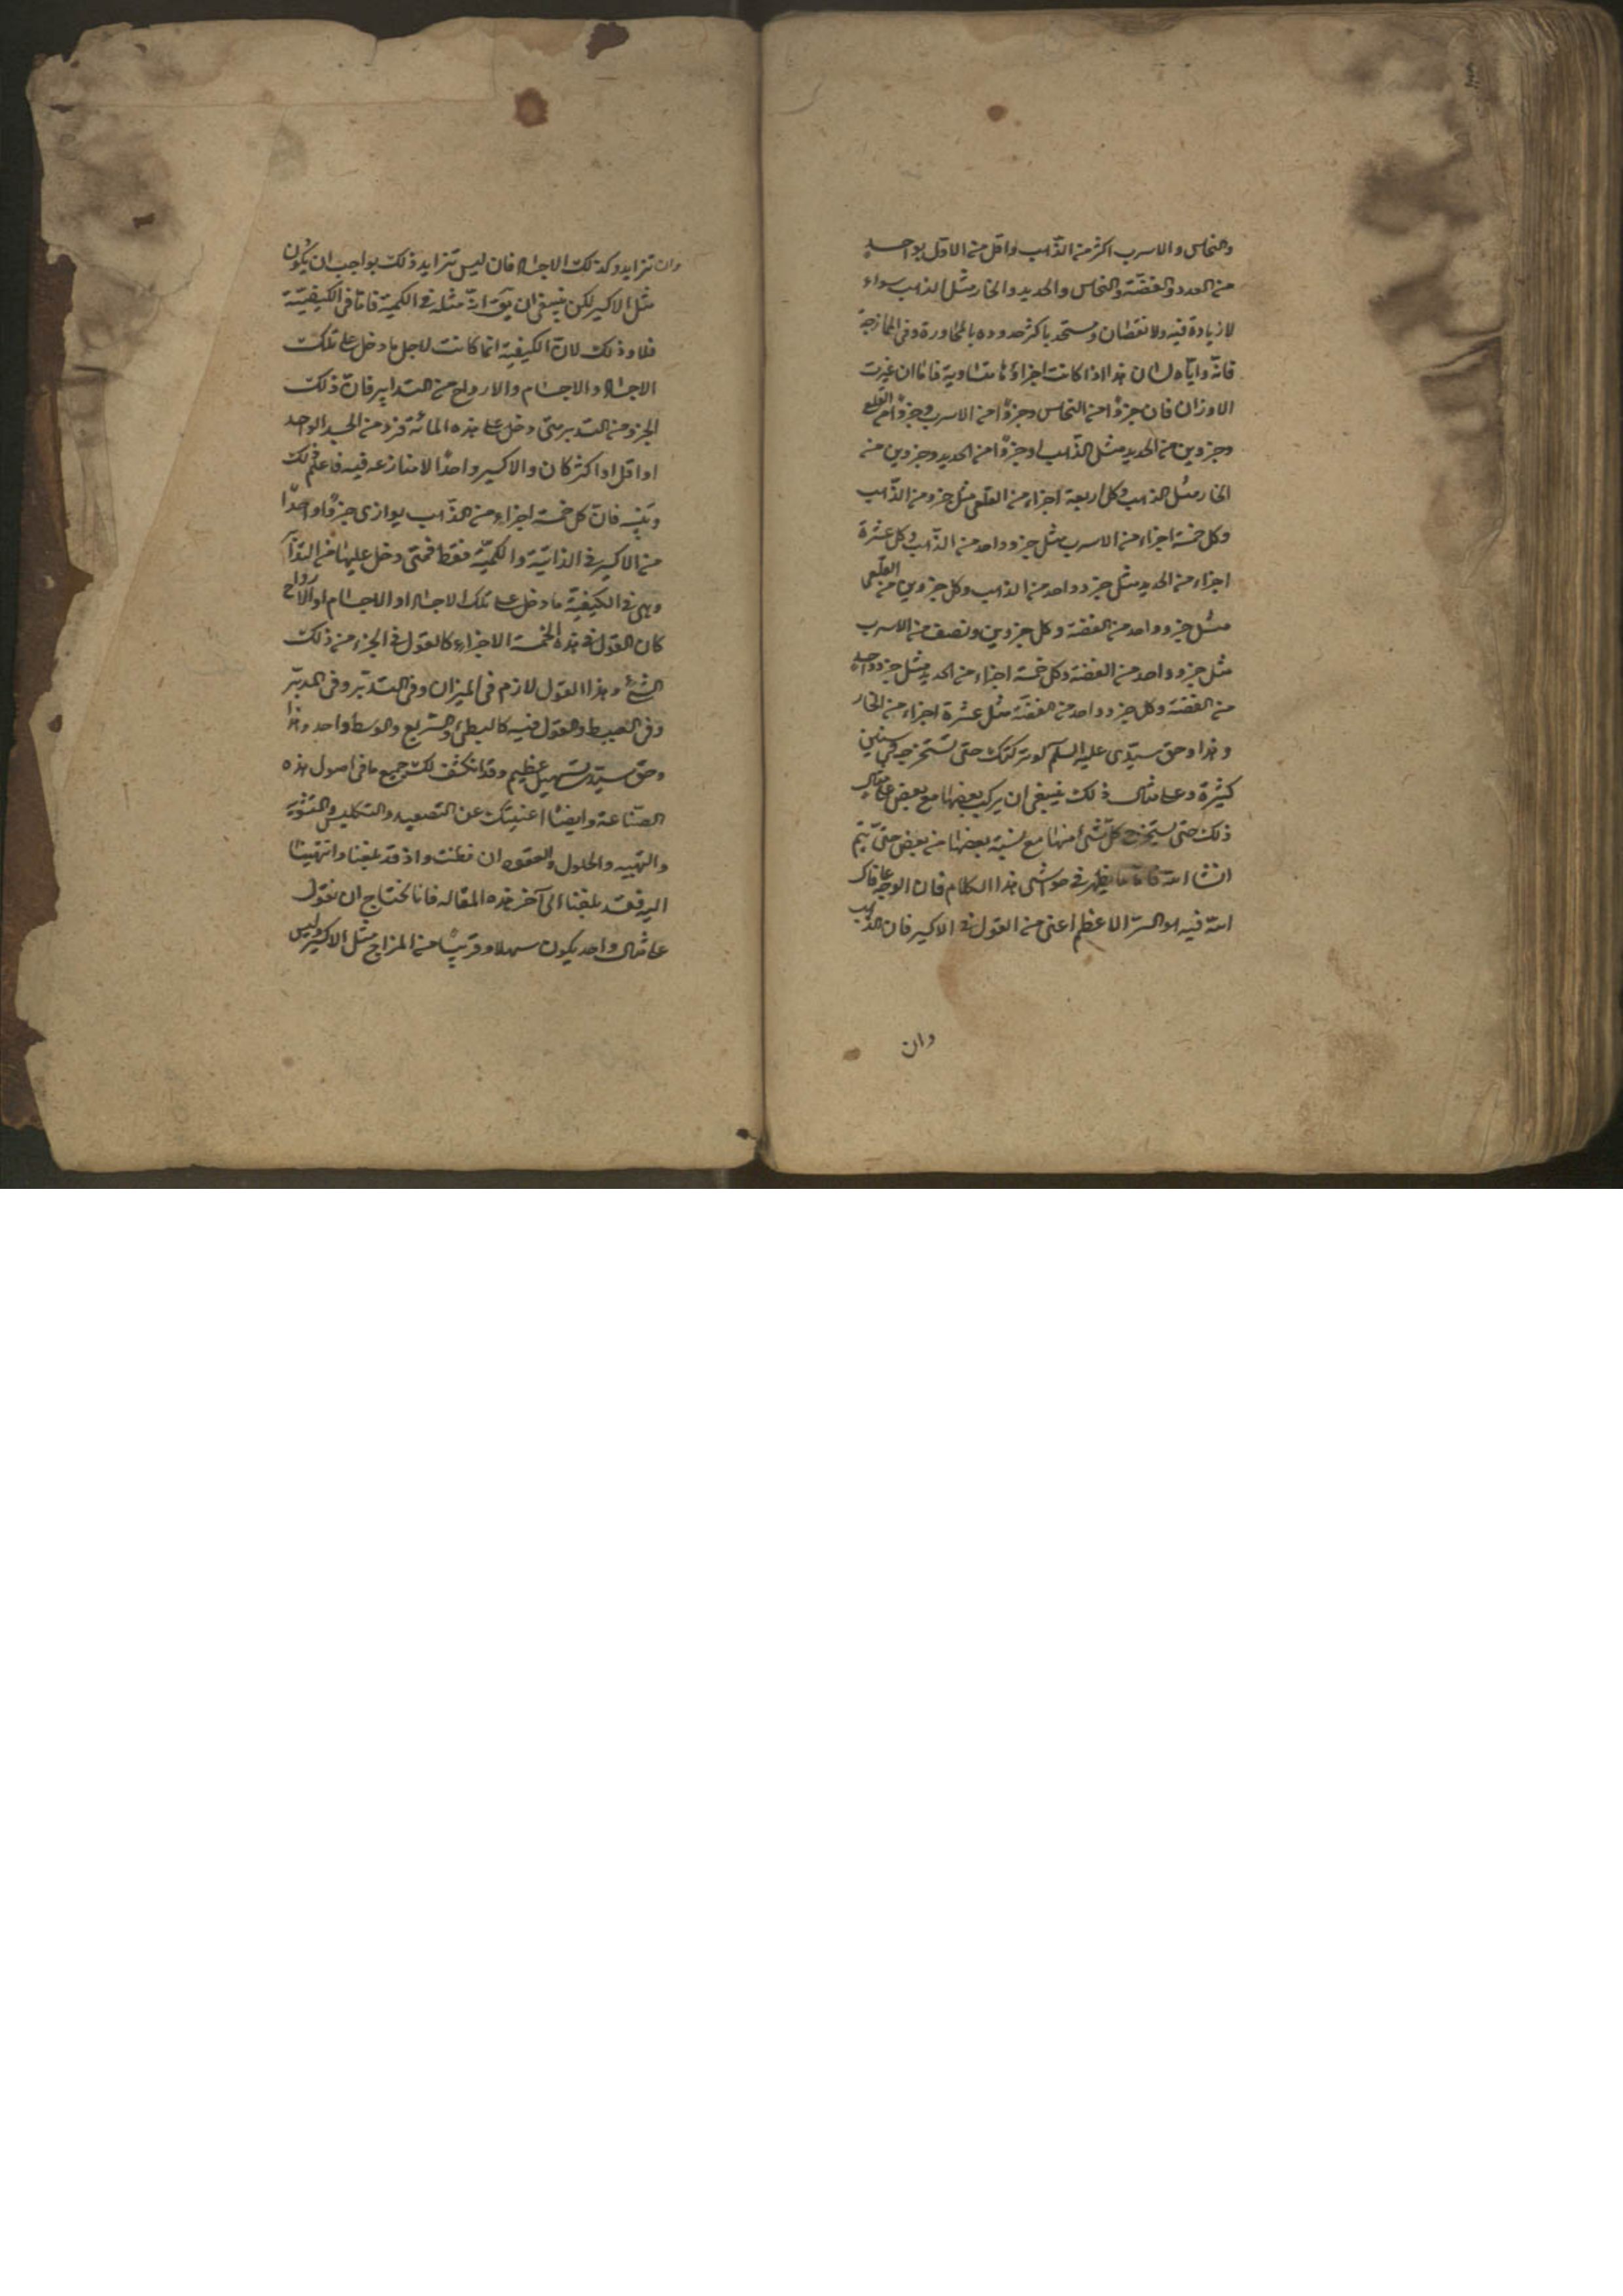 والنحاس والاسرب اكثر من الذهب واقل من الاول بواحد
من العدد والفضة والنحاس والحديد والخار مثل الذهب سواء
لا زيادة فيه ولا نقصان وستحد باكثر حدوده بالمجاورة وفي الممازجة
فانه واياه لسان هذا اذا كانت اجزاؤها متساوية فاما ان غيرت
الاوزان فان جزؤا من النحاس وجزؤا من الاسرب وجزؤا من القلعي
وجزوين من الحديد مثل الذهب وجزؤا من الحديد وجزوين من
الخار مثل الذهب وكل اربعة اجزاء من القلعي مثل جزو من الذهب
وكل خمسة اجزاء من الاسرب مثل جزو واحد من الذهب وكل عشرة
اجزاء من الحديد مثل جزو واحد من الذهب وكل جزوين من القلعي
مثل جزو واحد من الفضة وكل جزوين ونصف من الاسرب
مثل جزو واحد من الفضة وكل خمسة اجزاء من الحديد مثل جزو واحد
من الفضة وكل جزو واحد من الفضة مثل عشرة اجزاء من الخار
وهذا وحق سيدي عليه السلم لو تركتك حتى تستخرجه في سنين
كثيرة وعلى مثال ذلك ينبغي ان يركب بعضها مع بعض على مثال
ذلك حتى يستخرج كل شئ منها مع نسبة بعضها من بعض حتى يتم
انشا الله يظهر في حواشي هذا الكلام فان الوجه
الله فيه هو السر الاعظم اعنى من القول في الاكسير فان الذهب
وان
وان تزايد وكذلك الاجساد فان ليس تزايد ذلك بواجب ان يكون
مثل الاكسير لكن ينبغي ان يق انه مثله في الكمية فاما في الكيفية
فلا وذلك لان الكيفية انما كانت لاجل ما دخل على تلك
الاجساد والاجسام والارواح من التدابير فان ذلك
الجزو من التدبير متى دخل على هذه المائة جزو من الجسد الواحد
او اقل او اكثر كان والاكسير واحدا لا منازعه فيه فاعلم ذلك
وتبينه فان كل خمسة اجزاء من الذهب يوازى جزؤا واحدا
من الاكسير في الذاتية والكمية فقط فمتى دخل عليها من التدابير
وهي في الكيفية ما دخل على تلك الاجساد او الاجسام او الارواح
كان القول في هذه الخمسة الاجزاء كالقول في الجزء من ذلك
الشئ وهذا القول لازم في الميزان وفي التدبير وفي المدبر
وفي البسيط والقول فيه كالبطئ والسريع والوسط واحد وهذا
وحق سيدي تسهيل عظيم وقد انكشف لك جميع ما في اصول هذه
الصناعة وايضا اغنيتك عن التصعيد والتكليس والتشوية
والتهبيه والحلول والعقود ان فطنت واذ قد بلغنا وانتهينا
اليه فقد بلغنا الى آخر هذه المقاله فانا نحتاج ان نقول
على مثال واحد يكون سهلا وقريبا من المزاج مثل الاكسير وليس